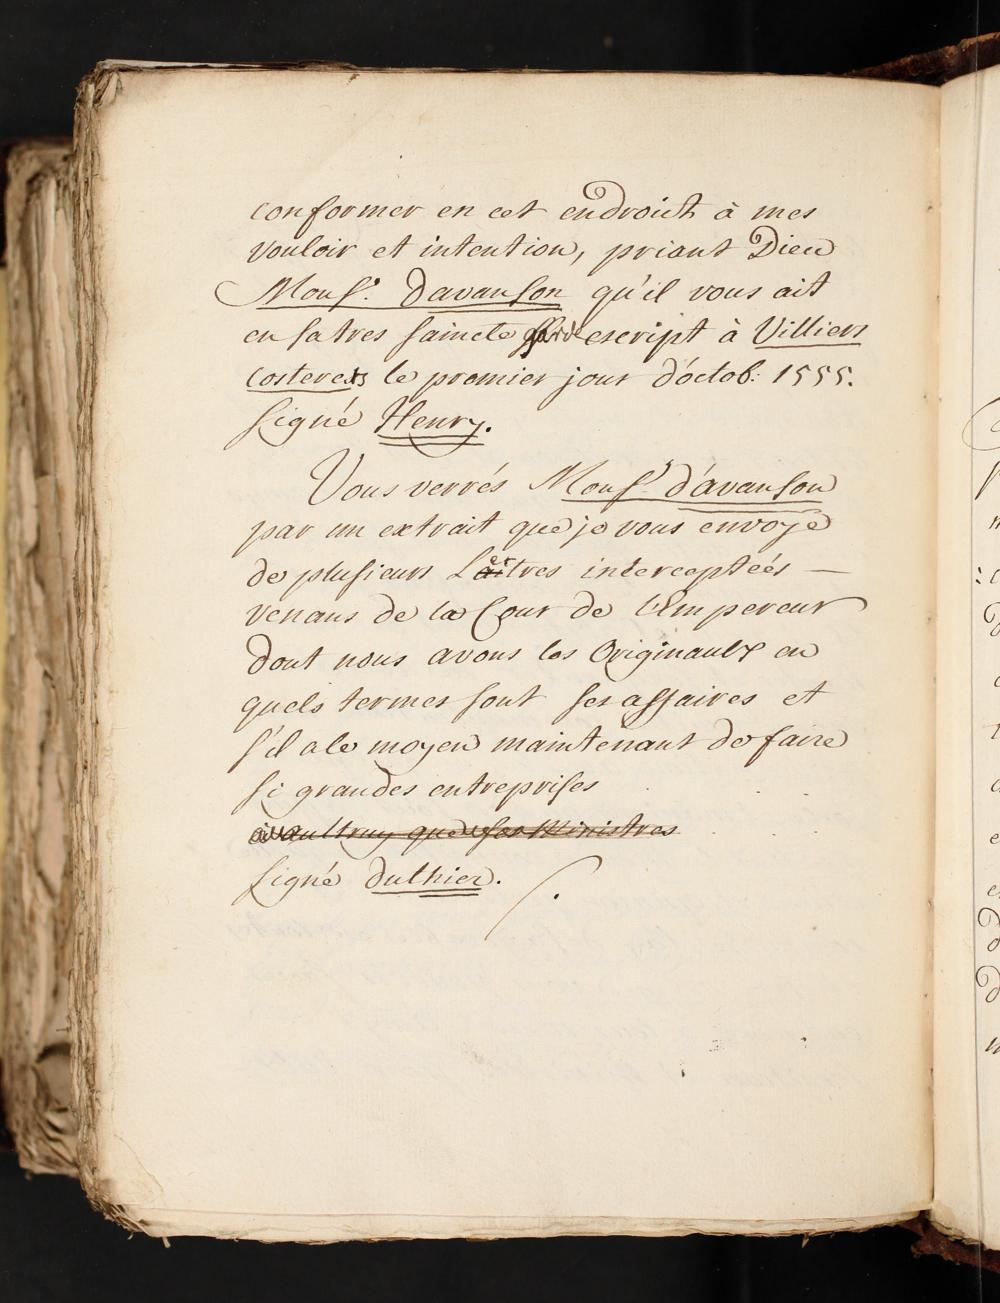 conformer en cet endroict à mes
vouloir et intention, priant Dieu
Monsr. davanson qu'il vous ait
en sa tres saincte garde escript à Villiers
costerets le premier jour d'octob: 1555.
signé Henry.
Vous verrés Monsr d'avanson
par un extrait que je vous envoye
de plusieurs Lettres interceptées —
venans de la Cour de l'Empereur
dont nous avons les Originaulx en
quels termes sont ses affaires et
s'il a le moyen maintenant de faire
si grandes entreprises
aultruy que ses Ministres
signé duthier.